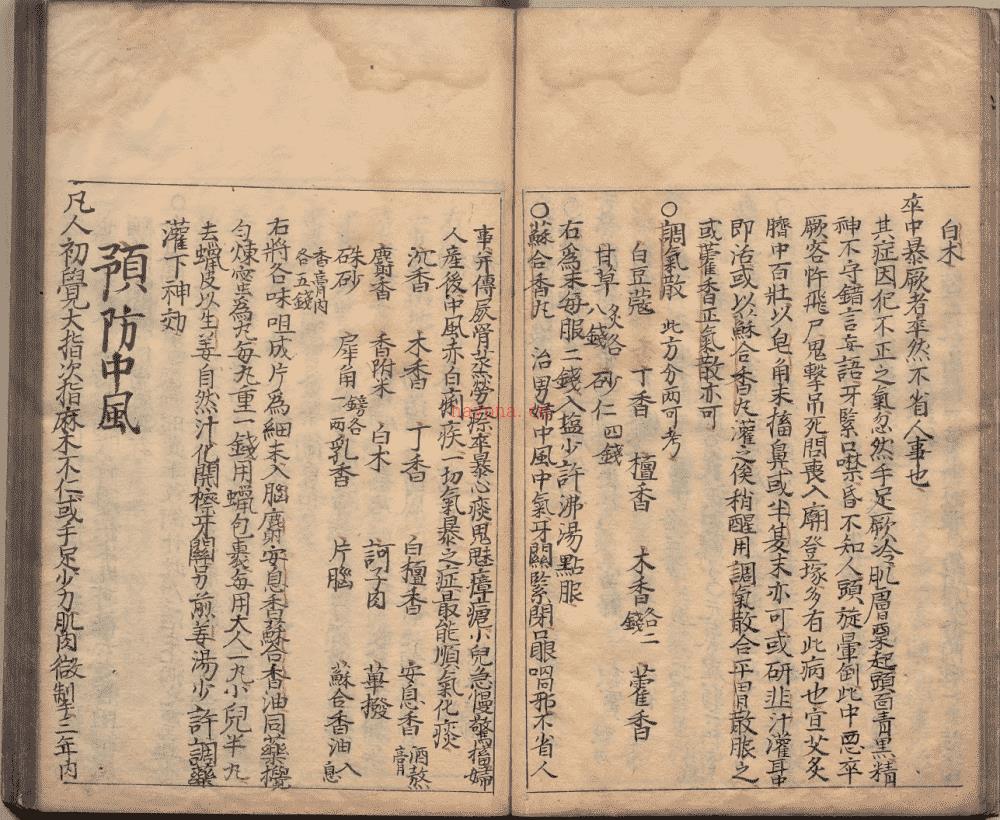 白术
卒中暴厥者卒然不省人事也
其症因犯不正之氣忽然手足厥冷肌膚粟起頭面青黑精
神不守錯言妄語牙緊口噤昏不知人頭旋暈倒此中惡卒
厥客忤飛尸鬼擊吊死問喪入廟登塚多有此病也宜艾炙
臍中百壯以皂角末搐鼻或半夏末亦可或研韭汁灌耳
即治或以蘇合香丸灌之候稍醒用調氣散合平胃散服之
或藿香正氣散亦可
○調氣散 此方分兩可考
白豆蔻 丁香 檀香 木香各二錢 藿香
甘草炙各八錢 砂仁四錢
右為末每服二錢入盐少許沸湯點服
○蘇合香丸 治男婦中風中氣牙關緊閉口眼喎邪不省人
事并傳屍骨蒸勞瘵卒暴心痰鬼魅瘴瘧小兒急慢驚搐婦
人産後中風赤白痢疾一切氣暴之症最能順氣化痰
沉香 木香 丁香 白檀香 安息香酒熬膏
麝香 香附米 白术 訶子肉 蓽撥
硃砂 犀角鎊各一兩 乳香 片腦 蘇合香油入息
香膏内各五錢
右將各味咀成片為細末入腦麝安息香蘇合香油同藥攪
匀煉蜜為丸每丸重一錢用蠟包裹每用大人一丸小兒半丸
去蠟皮以生姜自然汁化開擦牙關另煎姜湯少許調藥
灌下神効
預防中風
凡人初覺大指次指麻木不仁或手足少力肌肉微制三年内